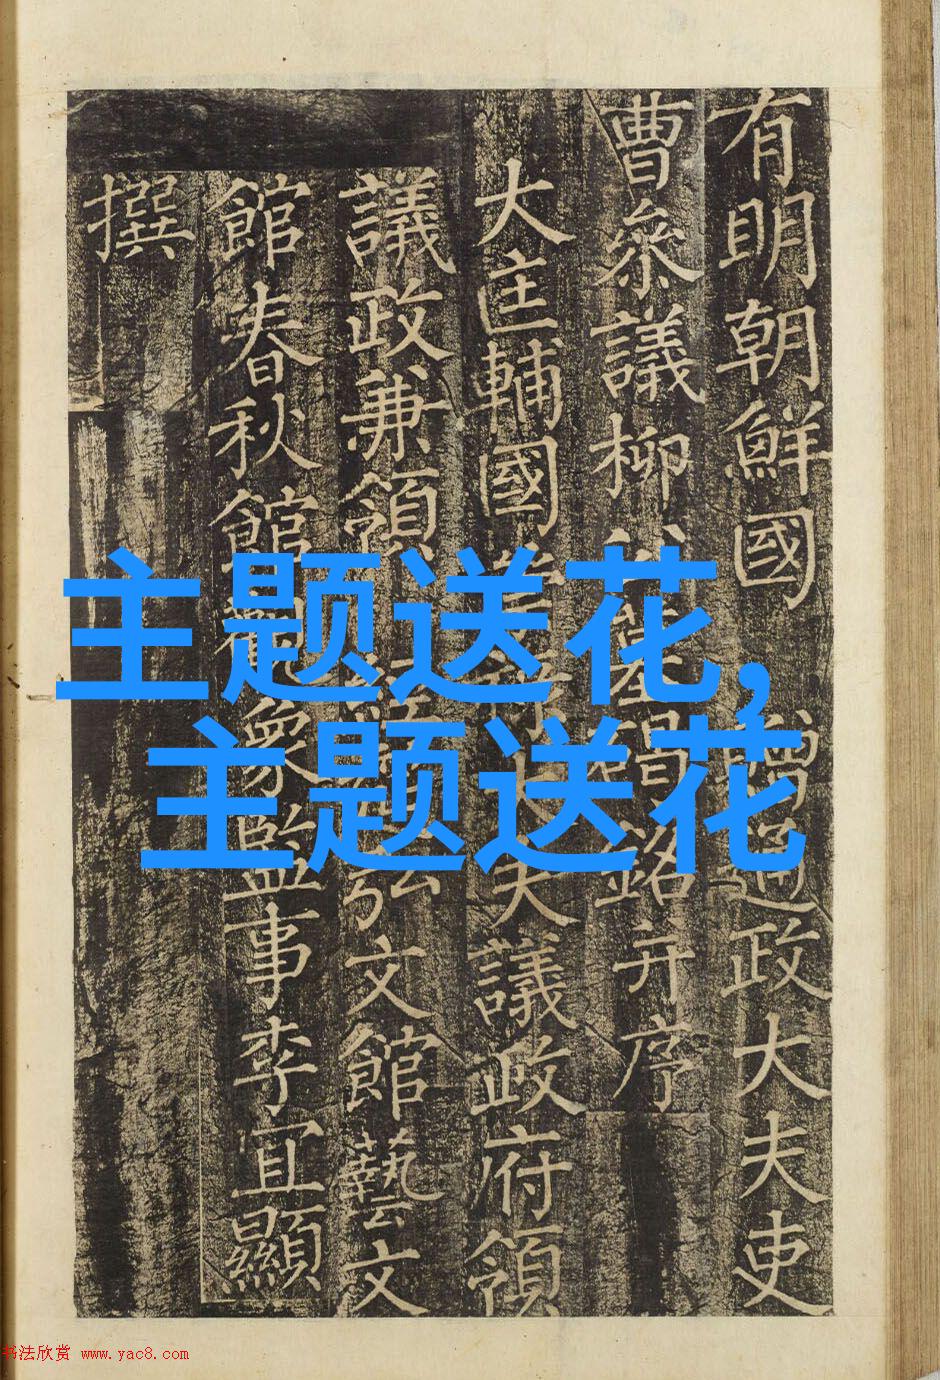 有明朝鮮國 贈通政大夫吏
曹叅議柳公墓碣銘并序
大匡輔國崇祿大夫議政府領
議政兼領 經筵弘文館藝文
館春秋館觀象監事李宜顯
撰
主题送花,
主题送花
书法欣赏 www.yac8.com